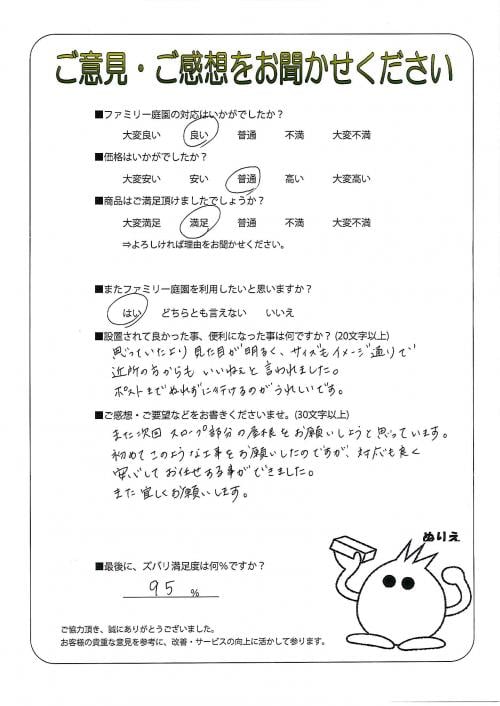 ご意見・ご感想をお聞かせください
■ファミリー庭園の対応はいかがでしたか？
大変良い 良い 普通 不満 大変不満
■価格はいかがでしたか？
大変安い 安い 普通 高い 大変高い
■商品はご満足頂けましたでしょうか？
大変満足 満足 普通 不満 大変不満
⇒よろしければ理由をお聞かせください。
■またファミリー庭園を利用したいと思いますか？
はい どちらとも言えない いいえ
■設置されて良かった事、便利になった事は何ですか？(20文字以上)
思っていたより見た目が明るく、サイズもイメージ通りで
近所の方からもいいねぇと言われました。
ポストまでぬれずに行けるのがうれしいです。
■ご感想・ご要望などをお書きくださいませ。(30文字以上)
また次回スロープ部分の屋根をお願いしようと思っています。
初めてこのような工事をお願いしたのですが、対応も良く
安心してお任せする事ができました。
また宜しくお願いします。
ぬりえ
■最後に、ズバリ満足度は何％ですか？
95 ％
ご協力頂き、誠にありがとうございました。
お客様の貴重な意見を参考に、改善・サービスの向上に活かして参ります。